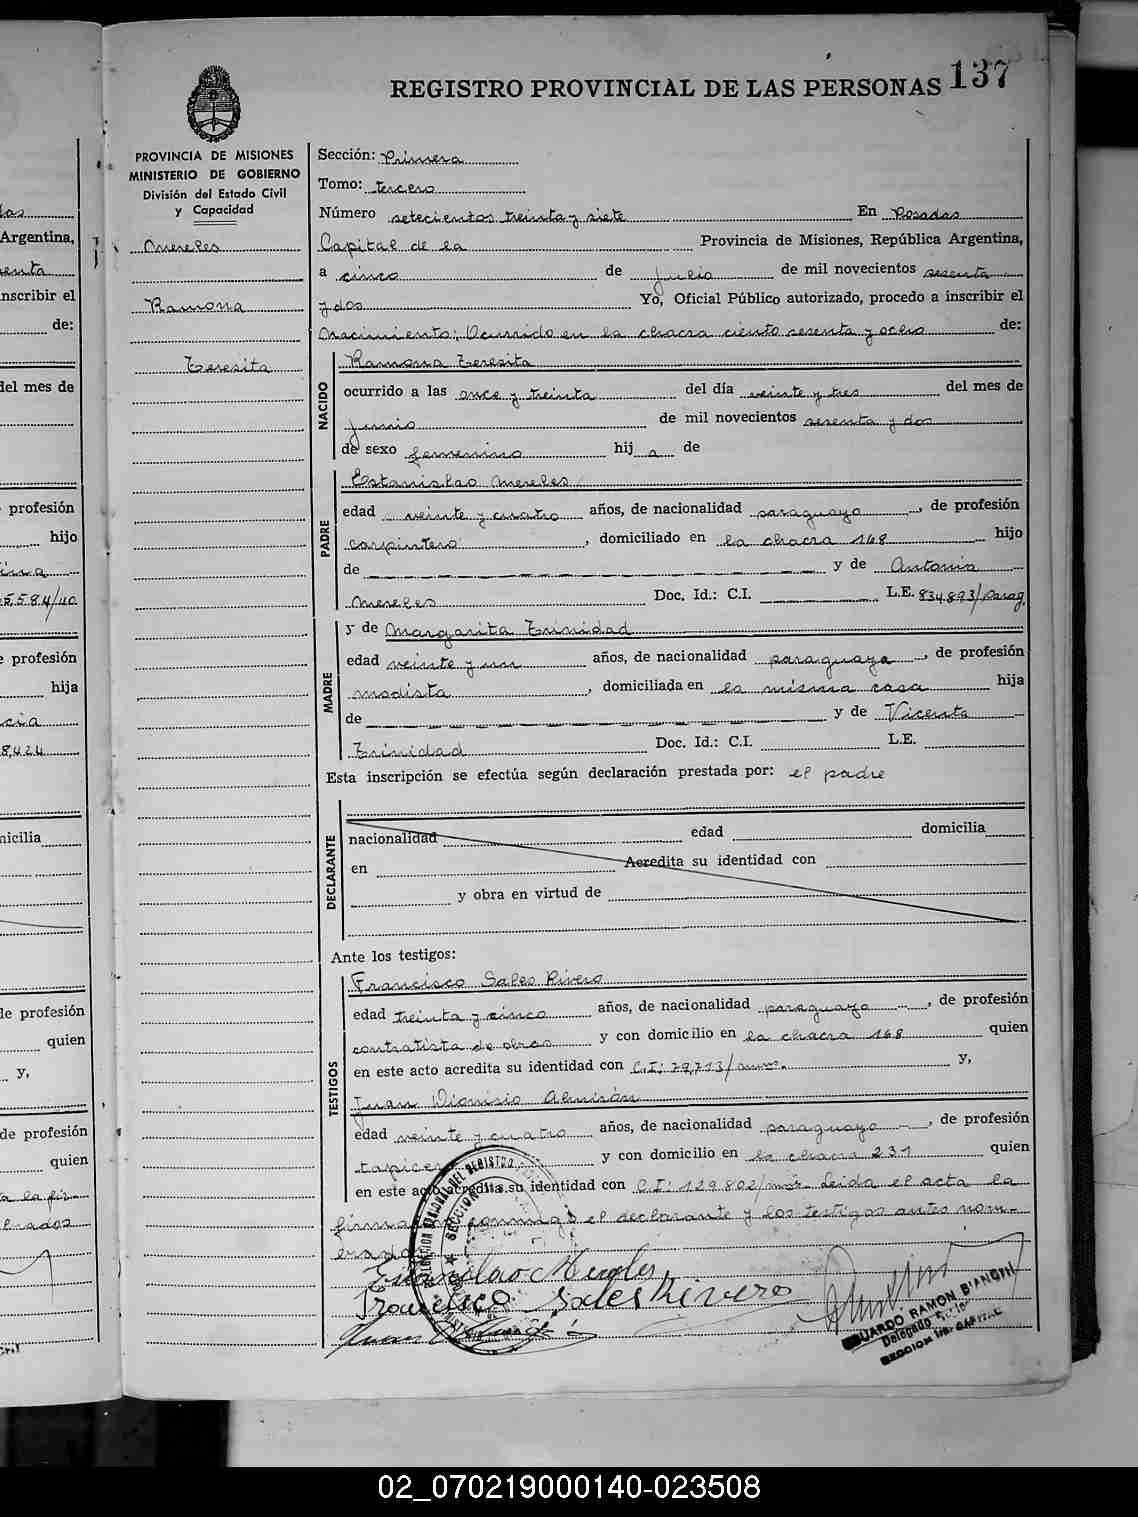 REGISTRO PROVINCIAL DE LAS PERSONAS 137
PROVINCIA DE MISIONES
MINISTERIO DE GOBIERNO
División del Estado Civil
y Capacidad
Mereles
Ramona
Teresita
Sección: Primera
Tomo: tercero
Número setecientos treinta y siete En Posadas
Capital de la Provincia de Misiones, República Argentina,
a cinco de Julio de mil novecientos sesenta
y dos Yo, Oficial Público autorizado, procedo a inscribir el
Nacimiento: Ocurrido en la chacra ciento sesenta y ocho de:
NACIDO
Ramona Teresita
ocurrido a las once y treinta del día veinte y tres del mes de
Junio de mil novecientos sesenta y dos
de sexo femenino hij a de
PADRE
Estanislao Mereles
edad veinte y cuatro años, de nacionalidad paraguayo, de profesión
carpintero, domiciliado en la chacra 168 hijo
de y de Antonia
Mereles Doc. Id.: C.I. L.E. 834.893/Parag.
MADRE
y de Margarita Trinidad
edad veinte y un años, de nacionalidad paraguaya, de profesión
modista, domiciliada en la misma casa hija
de y de Vicenta
Trinidad Doc. Id.: C.I. L.E.
Esta inscripción se efectúa según declaración prestada por: el padre
DECLARANTE
nacionalidad edad domicilia
en Acredita su identidad con
y obra en virtud de
Ante los testigos:
TESTIGOS
Francisco Sales Rivero
edad treinta y cinco años, de nacionalidad paraguayo, de profesión
contratista de obras y con domicilio en la chacra 168 quien
en este acto acredita su identidad con C.I: 79,713/ y,
Juan Dionisio Almirón
edad veinte y cuatro años, de nacionalidad paraguayo, de profesión
y con domicilio en la chacra 231 quien
en este acto acredita su identidad con C.I: 129.802/ Leida el acta la
conmigo el declarante y los testigos antes nom-
Estanislao Mereles
Francisco Sales Rivero
EDUARDO RAMON BIANCHI
Delegado
SECCION CAPITAL
Argentina,
inscribir el
de:
del mes de
profesión
hijo
5584/40
profesión
hija
8,424
micilia
de profesión
quien
y,
de profesión
quien
02_070219000140-023508